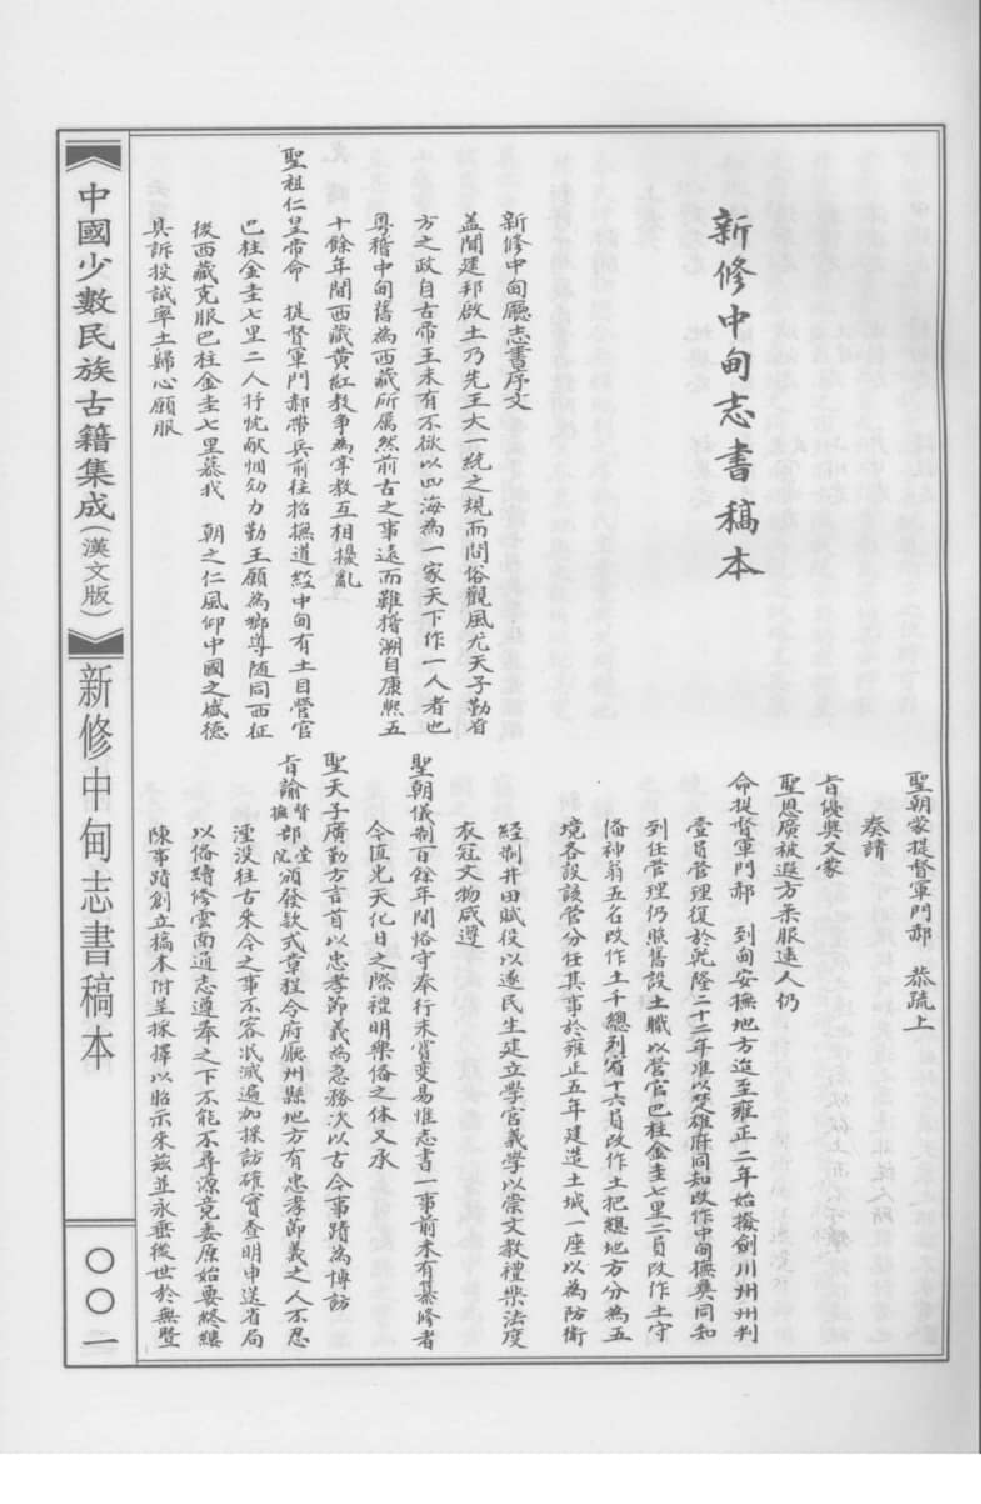 新修中甸志書稿本
新修中甸廳志書序文
蓋聞建邦啟土乃先王大一統之規而問俗觀風尤天子勤省
方之政自古帝王未有不欲以四海為一家天下作一人者也
粵稽中甸舊為西藏所屬然前古之事遠而難稽溯自康熙五
十餘年間西藏黄紅教爭為掌教互相擾亂
聖祖仁皇帝命 提督軍門郝帶兵前往招撫道經中甸有土目營官
巴柱金圭七里二人抒忱献悃効力勤王願為鄉導随同西征
後西藏克服巴柱金圭七里慕我 朝之仁風仰中國之盛德
具訴投誠率土歸心願服
聖朝蒙提督軍門郝 恭疏上
奏請
旨優奬又蒙
聖恩廣被遐方柔服遠人仍
命提督軍門郝 到甸安撫地方迨至雍正二年始撥劍川州州判
壹員管理復於乾隆二十二年准以楚雄府同知改作中甸撫彝同知
到任管理仍照舊設土職以營官巴柱金圭七里二員改作土守
俻神翁五名改作土千總列賓十六員改作土把總地方分為五
境各設該管分任其事於雍正五年建造土城一座以為防衛
經制井田賦役以遂民生建立學宮義學以崇文教禮樂法度
衣冠文物咸遵
聖朝儀制百餘年間恪守奉行未嘗变易惟志書一事前未有纂修者
今值光天化日之際禮明樂俻之休又承
聖天子廣勤方言首以忠孝節義為急務次以古今事蹟為博訪
旨諭督撫部堂院頒發款式章程令府廳州縣地方有忠孝節義之人不忍
湮没往古來今之事不容泯滅遍加採訪確實查明申送省局
以俻續修雲南通志遵奉之下不能不尋源竟委原始要終縷
陳事蹟創立稿本附呈採擇以昭示來兹並永垂後世於無曁
中國少數民族古籍集成(漢文版)
新修中甸志書稿本
〇〇一